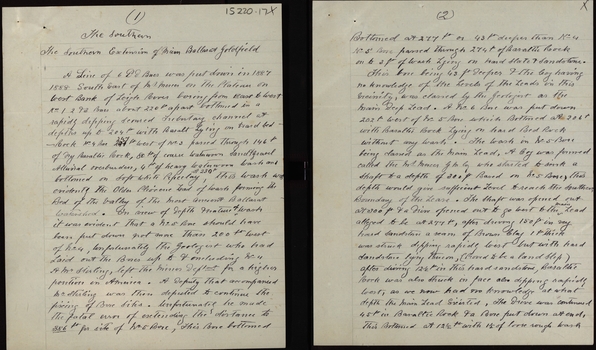 (1)
15220-17X
The Southern
The Southern Extension of Main Ballarat Goldfield
A Line of 6 Bores was put down in 1887
1888 South East of on the Plateau on
West Bank of Leigh River boring from East to West
No 1, 2 & 3 Bores about 220 ft apart bottomed in a
rapidly dipping Tributary channel at
depths up to 204 ft with Basalt lying on
Rock No 4 Bore west of No 3 passed through 146 ft
of Basaltic Rock,
Alluvial overburden, 4 ft of heavy wash and
bottomed on soft Pipeclay, This wash was
evidently the Older Pliocene Lead of wash forming the
Bed of the Valley of the most Ancient Ballarat
In view of depth & nature of wash
it was evident that a No 5 Bore should have
been put down not more than 200 ft west
of No 4, unfortunately the Geologist who had
Laid out the Bores up to & including No 4
A Mr Stirling, left the Mines Dept for a higher
position in America. A Deputy that accompanied
Mr Stirling was then deputed to continue the
fixing of Bore Sites. Unfortunately he made
the fatal error of extending the distance to
for site of No 5 Bore, This Bore bottomed
(2)
X
Bottomed at 277 ft or 43 ft deeper than No 4
No 5 Bore passed through 274 ft of Basaltic Rock
on to 3 ft of wash lying on hard slate & sandstone.
This Bore being 43 ft deeper & the Coy having
no knowledge of the levels of the Leads in this
vicinity, was classed by the Geologist as the
Main Deep Lead. A No 6 Bore was put down
222 ft west of No 5 Bore which Bottomed at
with Basaltic Rock lying on hard Bed Rock
without any wash. The wash in No 5 Bore
being classed as the Main Lead, A Coy was formed
called the who decided to sink a
shaft to a depth of 308 ft Based on No 5 Bore, this
depth would give sufficient Level to reach the Southern
boundary of the Lease. The shaft was opened out
at 300 ft & a Drive opened out to go west to the Lead
alleged to be at 277 ft, after driving 150 ft in very
hard sandstone a seam of Brown Clay 1 ft thick
was struck dipping rapidly west but with hard
sandstone lying thereon, (Proved to be a land slip)
after driving 124 ft in this hard sandstone, Basaltic
Rock was also struck on face also dipping rapidly
west, as we now had no knowledge at what
depth the Main Lead existed, the Drive was continued
45 ft in Basaltic Rock & a Bore put down at end,
This Bottomed at 122 ft with 1½ of loose rough wash